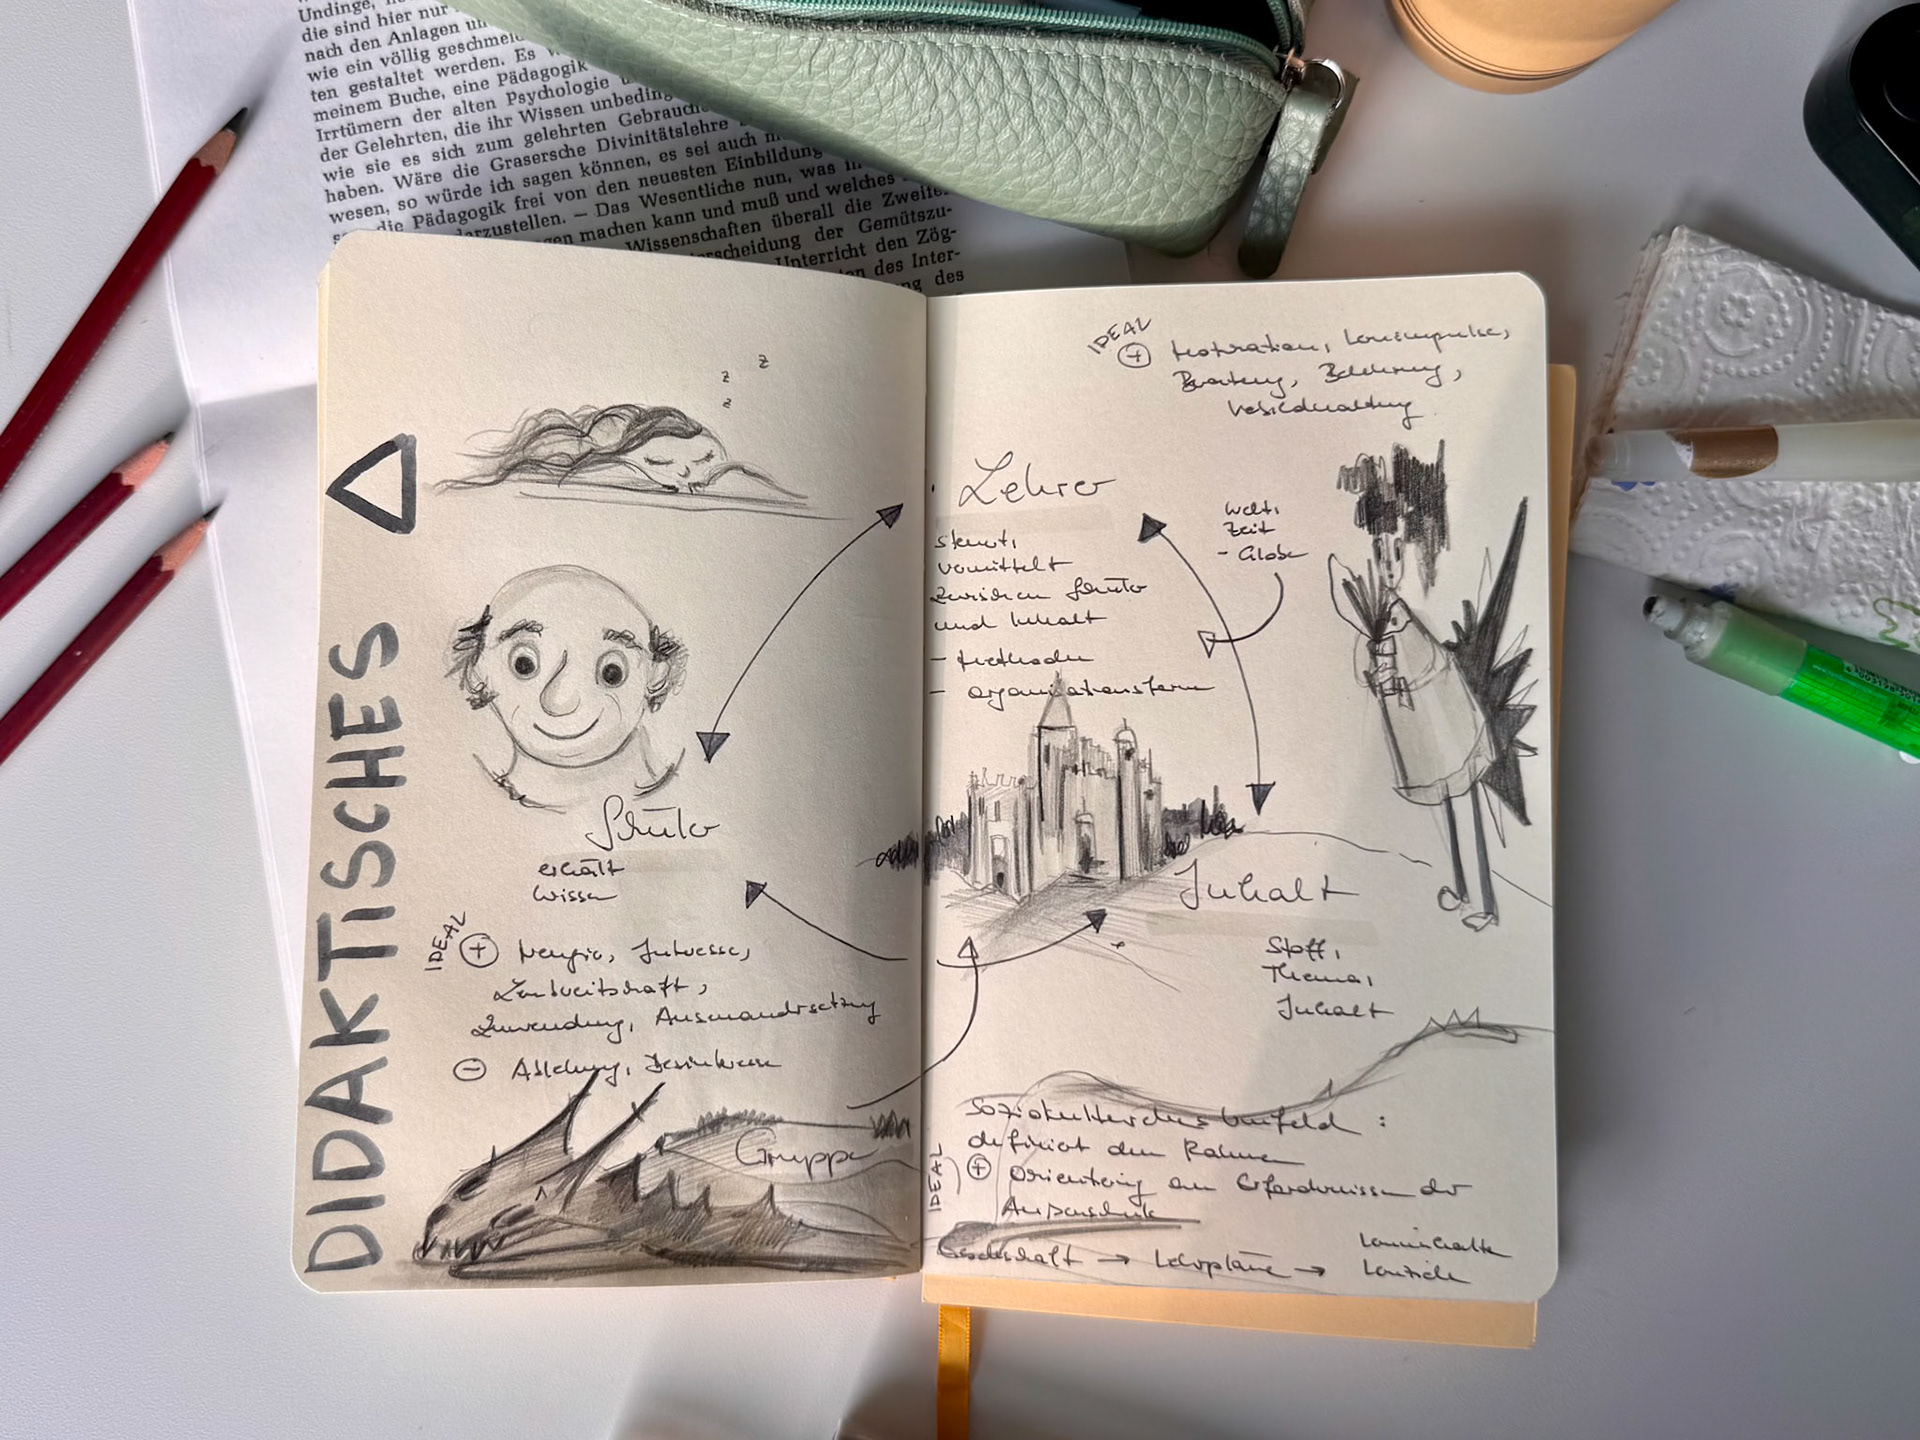 Undinge,
die sind hier nur
nach den Anlagen un
wie ein völlig geschmei
ten gestaltet werden. Es
meinem Buche, eine Pädagogik
Irrtümern der alten Psychologie
der Gelehrten, die ihr Wissen unbeding
wie sie es sich zum gelehrten Gebrauche
haben. Wäre die Grasersche Divinitätslehre
wesen, so würde ich sagen können, es sei auch
die Pädagogik frei von den neuesten Einbildung
darzustellen. — Das Wesentliche nun, was
machen kann und muß und welches
Wissenschaften überall die Zweite
der Gemütszu-
Unterricht den Zög-
des Inter-
des
DIDAKTISCHES
z
z
z
Schüler
erhält
Wissen
IDEAL
+ Neugier, Interesse,
Lernbereitschaft,
Zuwendung, Auseinandersetzung
- Ablehnung, Desinteresse
Gruppe
IDEAL
+ Motivation, Lernimpulse,
Beratung,
Lehrer
steuert,
vermittelt
zwischen Schüler
und Inhalt
- Methoden
- Organisationsform
Welt,
Zeit
- Globe
Inhalt
Stoff,
Thema,
Inhalt
Soziokulturelles Umfeld :
definiert den Rahmen
IDEAL
+ Orientierung an Erfordernissen der
Gesellschaft → Lehrpläne → Lerninhalte
Lernziele